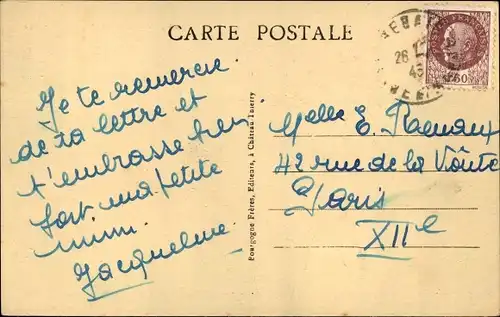 CARTE POSTALE
Je te remercie
de ta lettre et
t'embrasse très
fort ma petite
mimi.
Jacqueline
Bourgogne Frères, Editeurs, à Château-Thierry
26
43
1F60
Melle E.
42 rue de la Voûte
Paris
XIIe